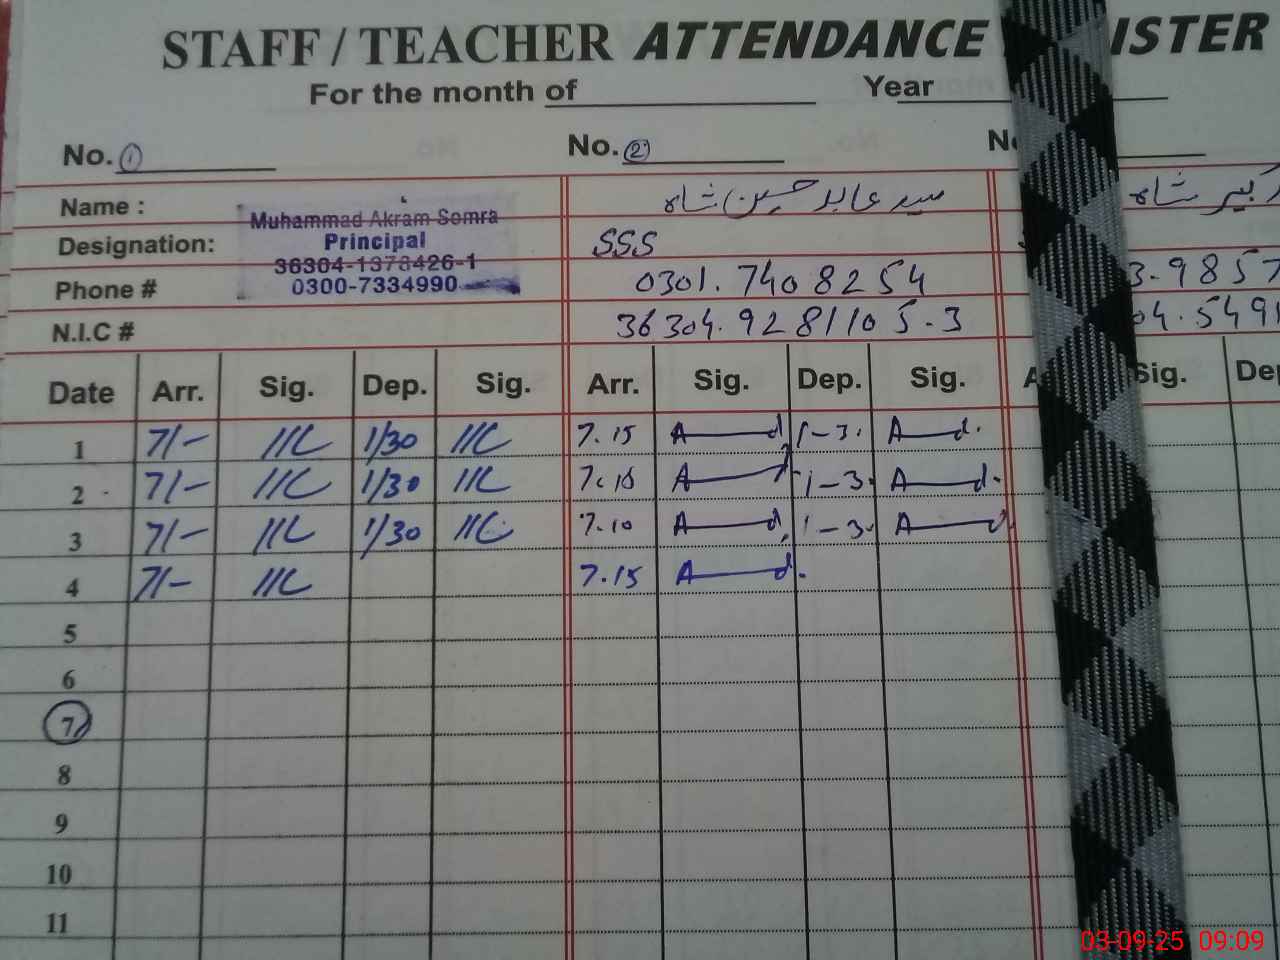 STAFF / TEACHER ATTENDANCE ISTER
For the month of Year
No. 1 No. 2
Name : Muhammad Akram Somra سید عابد حسین شاہ شاہ
Designation: Principal SSS
36304-1373426-1
Phone # 0300-7334990 0301.7408254 3-9857
N.I.C # 36304.9281105-3 04.549
Date Arr. Sig. Dep. Sig. Arr. Sig. Dep. Sig. A Sig. Dep
1 7/- 1/30 7.15 1-3.
2 7/- 1/30 7.10 1-3.
3 7/- 1/30 7.10 1-3.
4 7/- 7.15
5
6
7
8
9
10
11
03-09-25 09:09